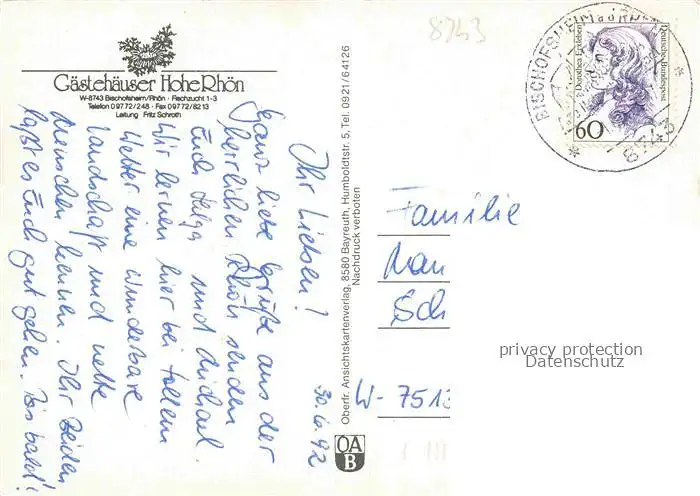 8743
Gästehäuser HoheRhön
W-8743 Bischofsheim/Rhön · Rechzucht 1-3
Telefon 09772/248 · Fax 09772/8213
Leitung Fritz Schroth
30.6.92
Ihr Lieben!
Ganz liebe Grüße aus der
herrlichen Rhön senden
Euch Helga und Michael.
Wir lernen hier bei tollem
Wetter eine wunderbare
Landschaft und nette
Menschen kennen. Ihr Beiden
laßt es Euch gut gehen. Bis bald!
Oberfr. Ansichtskartenverlag, 8580 Bayreuth, Humboldtstr. 5, Tel. 0921/64126
Nachdruck verboten
OA
B
BISCHOFSHEIM
8743
Dorothea Erxleben
Deutsche Bundespost
60
Familie
Man
Sch
W-7513
privacy protection
Datenschutz